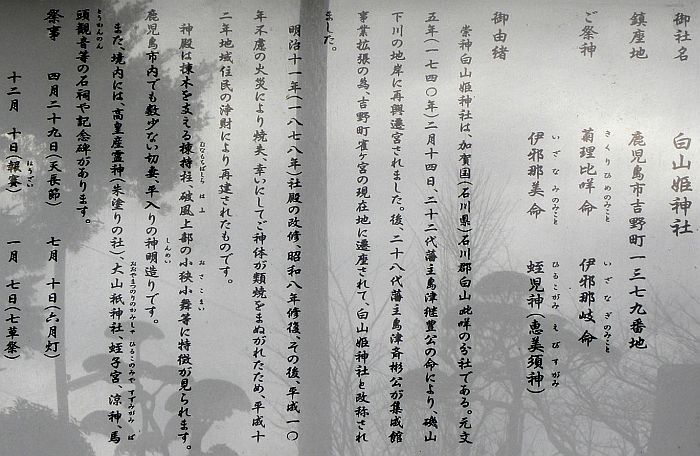 御社名　白山姫神社
鎮座地　鹿児島市吉野町一三七九番地
ご祭神　菊理比咩命　伊邪那岐命
きくりひめのみこと　いざなぎのみこと
伊邪那美命　蛭児神（恵美須神）
いざなみのみこと　ひるこがみ　えびすがみ
御由緒
崇神白山姫神社は、加賀国（石川県）石川郡白山比咩の分社である。元文
五年（一七四〇年）二月十四日、二十二代藩主島津継豊公の命により、磯山
下川の地岸に再興遷宮されました。後、二十八代藩主島津斉彬公が集成館
事業拡張の為、吉野町雀ヶ宮の現在地に遷座されて、白山姫神社と改称され
ました。
明治十一年（一八七八年）社殿の改修、昭和八年修復、その後、平成一〇
年不慮の火災により焼失、幸いにしてご神体が類焼をまぬがれたため、平成十
二年地域住民の浄財により再建されたものです。
神殿は棟木を支える棟持柱、破風上部の小狭小舞等に特徴が見られます。
むなもちばしら　はふ　おさこまい
鹿児島市内でも数少ない切妻、平入りの神明造りです。
しんめい
また、境内には、高皇産霊神（朱塗りの社）、大山祇神社、蛭子宮、涼神、馬
おおやまつりのかみしゃ　ひるこのみや　すずみがみ　ば
頭観音等の石祠や記念碑があります。
とうかんのん
祭事　四月二十九日（天長節）　七月　十日（六月灯）
十二月　十日（報賽）　一月　七日（七草祭）
ほうさい